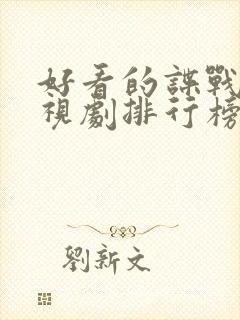 好看的諜戰
視劇排行榜
劉新文